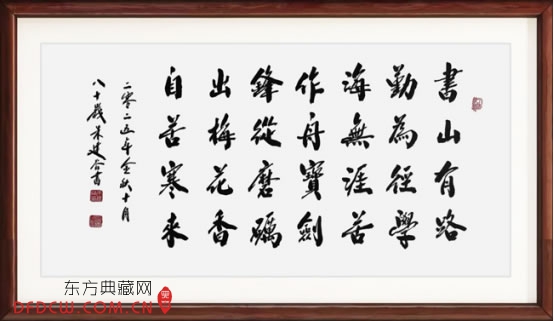 書山有路
勤為徑學
海無涯苦
作舟寶劍
鋒從磨礪
出梅花香
自苦寒來
二零二五年金秋十月
八十歲 書
东方典藏网
DFDCW.COM.CN